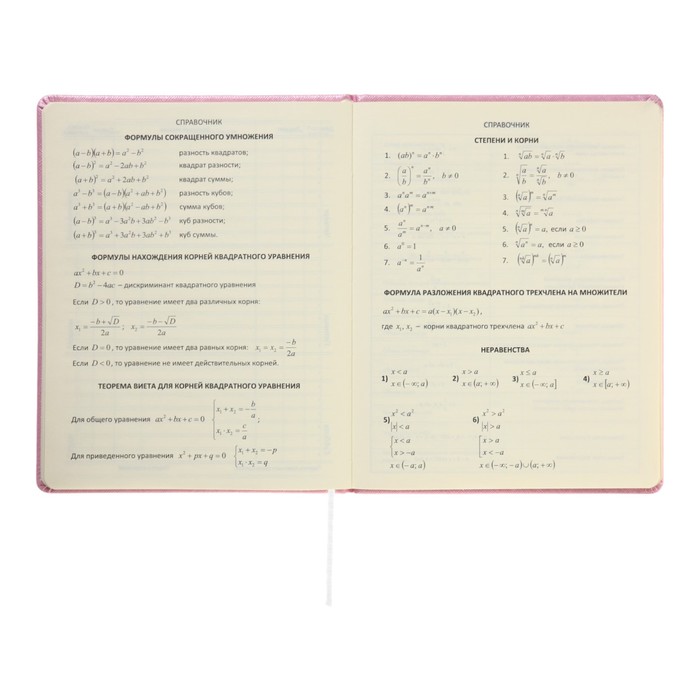 СПРАВОЧНИК
ФОРМУЛЫ СОКРАЩЕННОГО УМНОЖЕНИЯ
(a−b)(a+b)=a²−b² разность квадратов;
(a−b)²=a²−2ab+b² квадрат разности;
(a+b)²=a²+2ab+b² квадрат суммы;
a³−b³=(a−b)(a²+ab+b²) разность кубов;
a³+b³=(a+b)(a²−ab+b²) сумма кубов;
(a−b)³=a³−3a²b+3ab²−b³ куб разности;
(a+b)³=a³+3a²b+3ab²+b³ куб суммы.
ФОРМУЛЫ НАХОЖДЕНИЯ КОРНЕЙ КВАДРАТНОГО УРАВНЕНИЯ
ax²+bx+c=0
D=b²−4ac – дискриминант квадратного уравнения
Если D>0, то уравнение имеет два различных корня:
x₁=(−b+√D)/2a; x₂=(−b−√D)/2a
Если D=0, то уравнение имеет два равных корня: x₁=x₂=−b/2a
Если D<0, то уравнение не имеет действительных корней.
ТЕОРЕМА ВИЕТА ДЛЯ КОРНЕЙ КВАДРАТНОГО УРАВНЕНИЯ
Для общего уравнения ax²+bx+c=0 {x₁+x₂=−b/a; x₁·x₂=c/a
Для приведенного уравнения x²+px+q=0 {x₁+x₂=−p x₁·x₂=q
СПРАВОЧНИК
СТЕПЕНИ И КОРНИ
1. (ab)ⁿ=aⁿ·bⁿ 1. ⁿ√ab=ⁿ√a·ⁿ√b
2. (a/b)ⁿ=aⁿ/bⁿ, b≠0 2. ⁿ√(a/b)=ⁿ√a/ⁿ√b, b≠0
3. aⁿaᵐ=aⁿ⁺ᵐ 3. (ⁿ√a)ᵐ=ⁿ√aᵐ
4. (aⁿ)ᵐ=aⁿ*ᵐ 4. ᵐ√ⁿ√a=ᵐⁿ√a
5. aⁿ/aᵐ=aⁿ⁻ᵐ, a≠0 5. (ⁿ√a)ⁿ=a, если a≥0
6. a⁰=1 6. ⁿ√aⁿ=a, если a≥0
7. a⁻ⁿ=1/aⁿ
ФОРМУЛА РАЗЛОЖЕНИЯ КВАДРАТНОГО ТРЕХЧЛЕНА НА МНОЖИТЕЛИ
ax²+bx+c=a(x−x₁)(x−x₂),
где x₁, x₂ – корни квадратного трехчлена ax²+bx+c
НЕРАВЕНСТВА
1) x<a 2) x>a 3) x≤a 4) x≥a
x∈(−∞;a) x∈(a;+∞) x∈(−∞;a] x∈[a;+∞)
5) x²<a² 6) x²>a²
|x|<a |x|>a
{x<a [x>a
x>−a x<−a
x∈(−a;a) x∈(−∞;−a)∪(a;+∞)